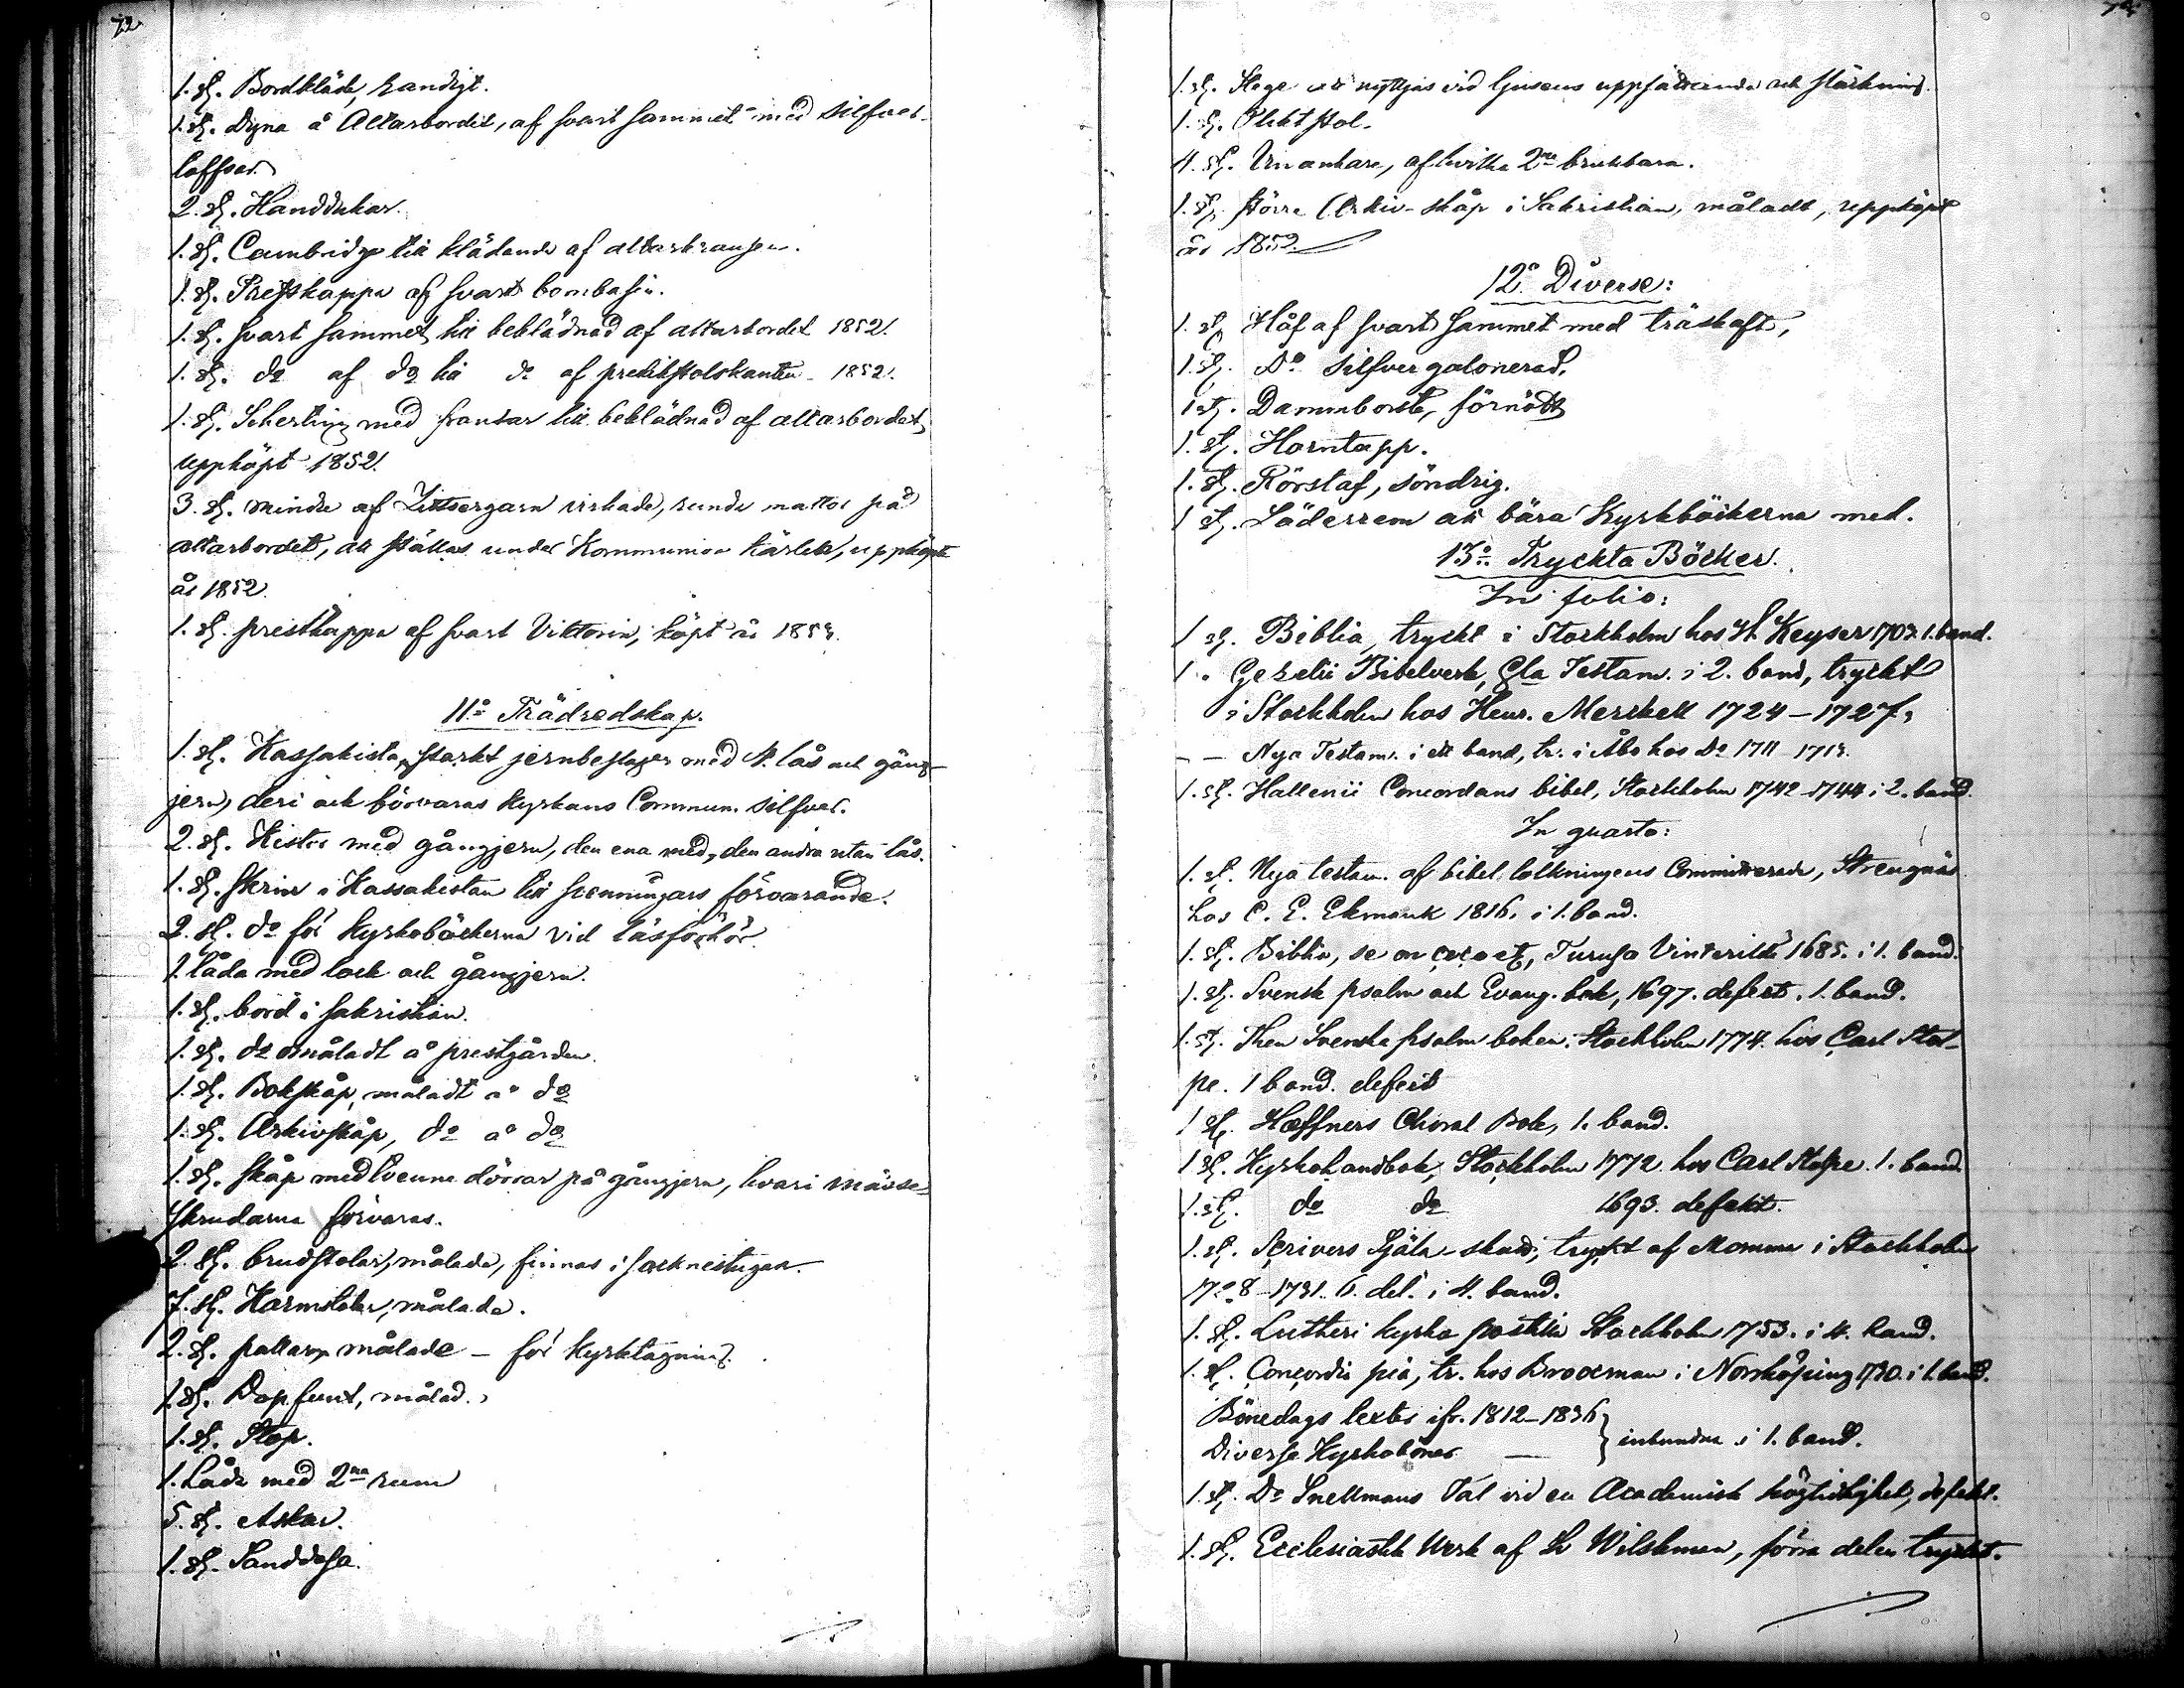 72
1. st. Bordkläde, randigt.
1. st. Dyna å Altarbordet, af svart sammet med silfver-
toffsar.
2. st. Handdukar.
1. st. Cambridge till klädande af altarkransen.
1. st. Prestkappa af svart bombasin.
1. st. svart sammet till beklädnad af altarbordet 1852.
1. st. do af do till do af predikstolskanten 1852.
1. st. Scherting med fransar till beklädnad af altarbordet,
uppköpt 1852.
3. st. mindre af Zittsergarn virkade, runda mattor på
altarbordet, att ställas under Kommunion kärlen, uppköpte
år 1852.
1. st. prestkappa af svart Viktorin, köpt år 1853.
11:o Trädredskap.
1. st. Kassakista, starkt jernbeslagen med 4. lås och gång-
jern, deri ock förvaras kyrkans Commun. silfver.
2. st. Kistor med gångjern, den ena med, den andra utan lås.
1. st. skrin i Kassakistan till penningars förvarande.
2. st. do för kyrkoböckerna vid läsförhör.
1. låda med lock och gångjern.
1. st. bord i sakristian.
1. st. do omåladt å prestgården.
1. st. Bokskåp, måladt å do
1. st. Arkivskåp, do å do
1. st. skåp med tvenne dörrar på gångjern, hvari mässe-
skrudarna förvaras.
2. st. brudstolar, målade, finnas i socknestugan.
7. st. Karmstolar, målade.
2. st. pallar, målade - för kyrktagning.
1. st. Dopfunt, målad.
1. st. Stop.
1. Låda med 2ne rum
5. st. Askar.
1. st. Sanddosa.
1. st. Stege att nyttjas vid ljusens uppsättande och släckning.
1. st. Pliktstol.
4. st. Urnankare, af hvilka 2ne brukbara.
1. st. större Arkiv-skåp i Sakristian, måladt, uppköpt
år 1852.
12:o Diverse:
1. st. Håf af svart sammet med träskaft,
1. st. Do silfvergalonerad.
1 st. Dammborste, förnött
1. st. Horntapp.
1. st. Rörstaf, söndrig.
1 st. Läderrem att bära Kyrkböckerna med.
13:o Tryckta Böcker.
In folio:
1 st. Biblia, tryckt i Stockholm hos H. Keyser 1703. 1. band.
1 " Gezelii Bibelverk, Gla Testam. i 2. band, tryckt
i Stockholm hos Henr. Merckell 1724-1727,
- - Nya Testam. i ett band, tr. i Åbo hos Do 1711-1713.
1. st. Hallenii Concordans bibel, Stockholm 1742-1744 i 2. band.
In quarto:
1. st. Nya testam. af bibel tolkningens Committerade, Strengnäs
hos C. E. Ekmark 1816. i 1. band.
1. st. Biblia, se on coco etc, Turusa Vinterildä 1685. i 1. band.
1. st. Svensk psalm och Evang. bok, 1697. defect. 1. band.
1. st. Then Svenska psalm boken. Stockholm 1774. hos Carl Stol-
pe. 1 band. defect
1 st. Hæffners Choral Bok, 1. band.
1 st. Kyrkohandbok, Stockholm 1772. hos Carl Stolpe. 1. band.
1. st. do do 1693. defekt.
1. st. Scrivers Själa-skatt, tryckt af Momma i Stockholm
1728-1731. 6. del. i 4. band.
1. st. Lutheri kyrko postilla Stockholm 1753. i 4. band.
1. st. Concordia pia, tr. hos Broocman i Norrköping 1730. i 1. band.
Bönedags texter ifr. 1812-1836 } inbundna i 1. band.
Diverse Kyrkoböner
1. st. Do Snellmans Tal vid en Academisk högtidlighet, defekt.
1. st. Ecclesiastik Verk af Wilskman, förra delen tryckt.